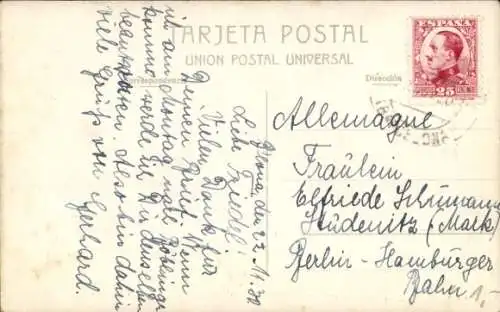 TARJETA POSTAL
UNION POSTAL UNIVERSAL
Correspondencia
Dirección
ESPAÑA
25
BARCELONA
Allemagne
Fräulein
Elfriede Schumann
Stüdenitz (Mark)
Berlin-Hamburger
Bahn
1,-
22.11.30
Liebe Friedel!
Vielen Dank für
Deinen Brief. Wenn
ich am Montag nach
komme, werde ich Dir denselben
beantworten. Also bis dahin
viele Grüße von Gerhard.